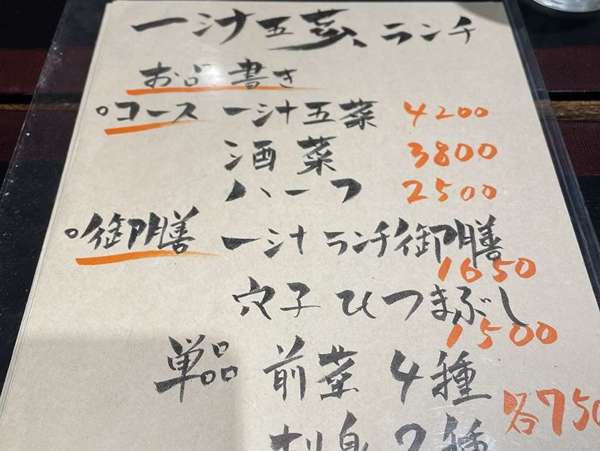 一汁五菜 ランチ
お品書き
○コース 一汁五菜 4200
酒菜 3800
ハーフ 2500
○御膳 一汁ランチ御膳 1650
穴子ひつまぶし 1500
単品 前菜 4種 各750
刺身 2種